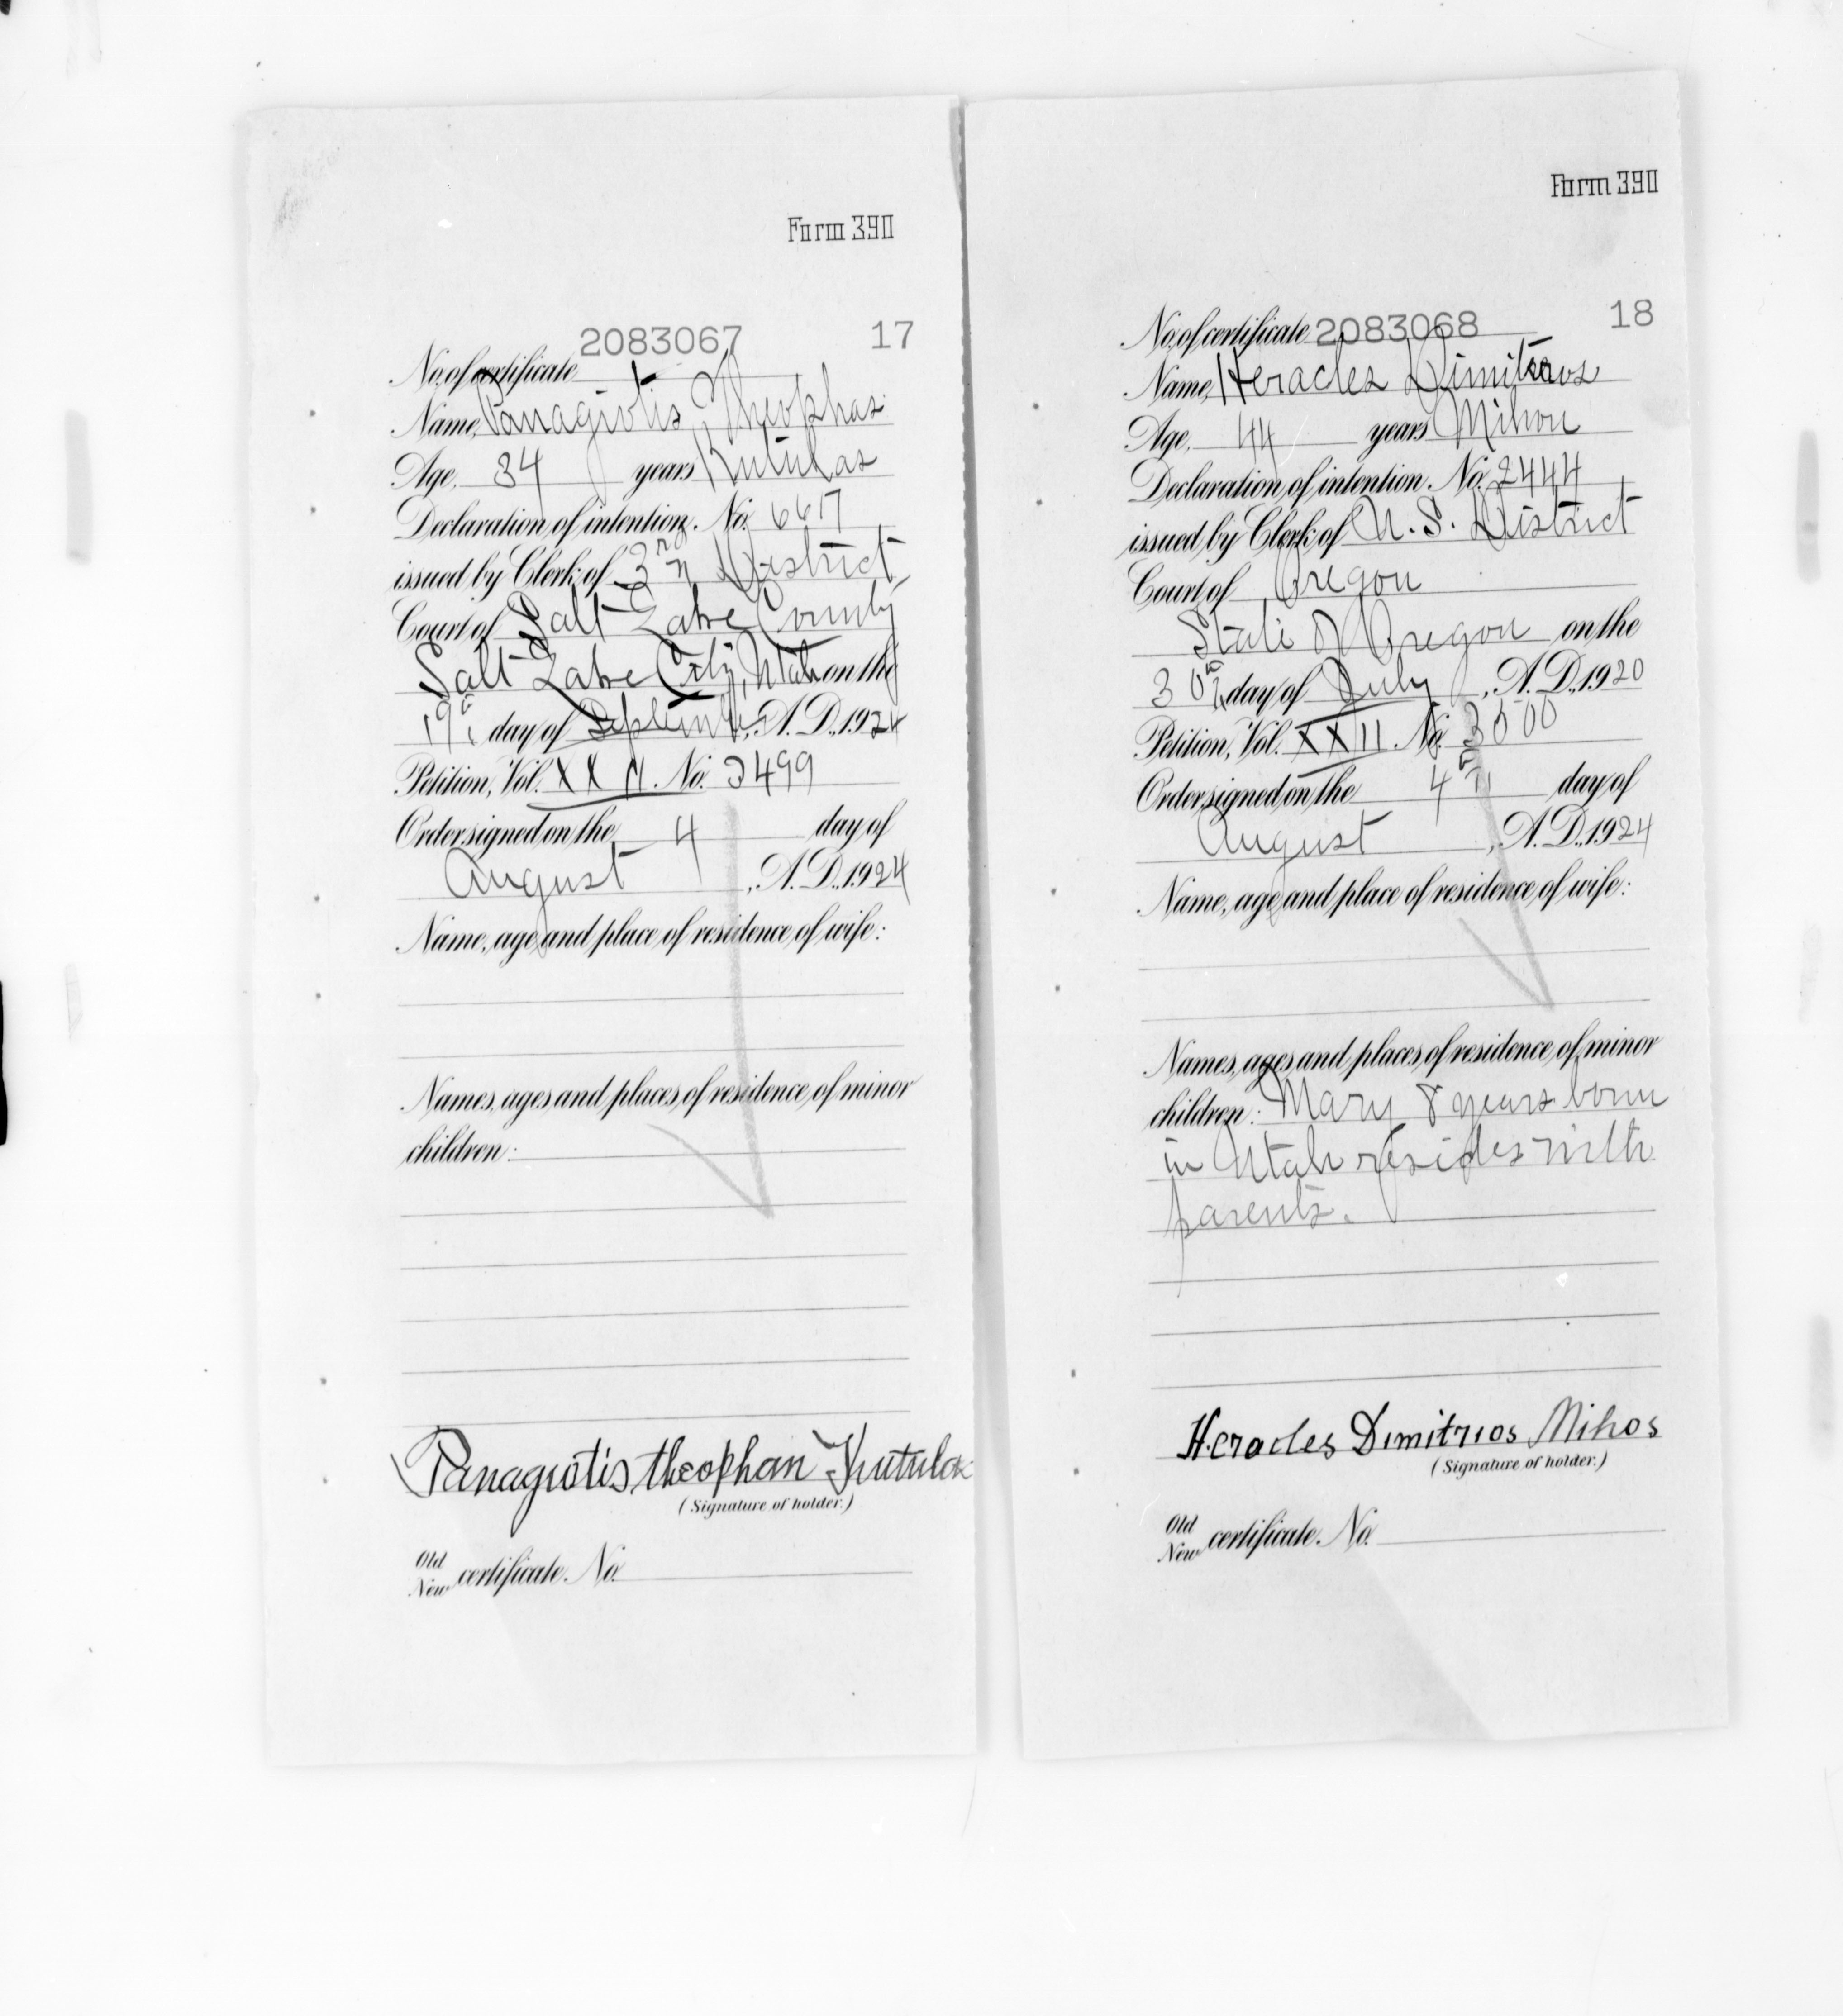 Form 390
2083067 17
No. of certificate
Name, Panagiotis Theophas
Age, 34 years Kutulas
Declaration of intention, No. 6617
issued by Clerk of 3rd District
Court of Salt Lake County
Salt Lake City, Utah on the
19th day of September, A. D., 1921
Petition, Vol. XXII. No. 3499
Order signed on the 4 day of
August, A. D., 1924
Name, age and place of residence of wife:
Names, ages and places of residence of minor
children:
Panagiotis theophan Kutulas
(Signature of holder.)
Old
New certificate No.
Form 390
No. of certificate 2083068 18
Name, Heracles Dimitrios
Age, 44 years Mihou
Declaration of intention, No. 2444
issued by Clerk of U. S. District
Court of Oregon
State of Oregon on the
30th day of July, A. D., 1920
Petition, Vol. XXIII. No. 3500
Order signed on the 4th day of
August, A. D., 1924
Name, age and place of residence of wife:
Names, ages and places of residence of minor
children: Mary 8 years born
in Utah resides with
parents.
Heracles Dimitrios Mihos
(Signature of holder.)
Old
New certificate No.